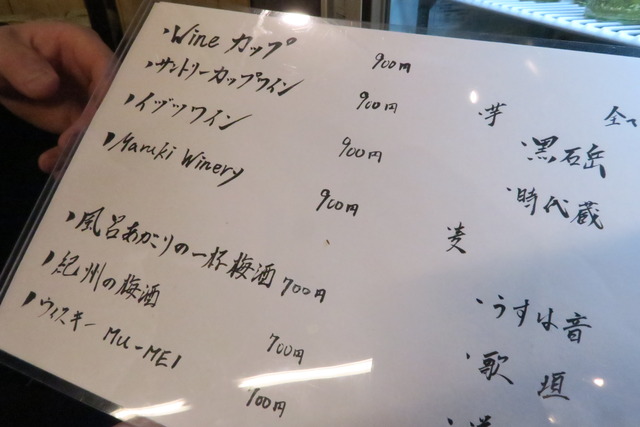 ・Wine カップ 900円
・サントリーカップワイン 900円
・イヅツワイン 900円
・Maruki Winery 900円
・風呂あがりの一杯梅酒 700円
・紀州の梅酒 700円
・ウィスキー MU-MEI 700円
・芋 全て
・黒石岳
・時代蔵
麦
・うすは音
・歌垣